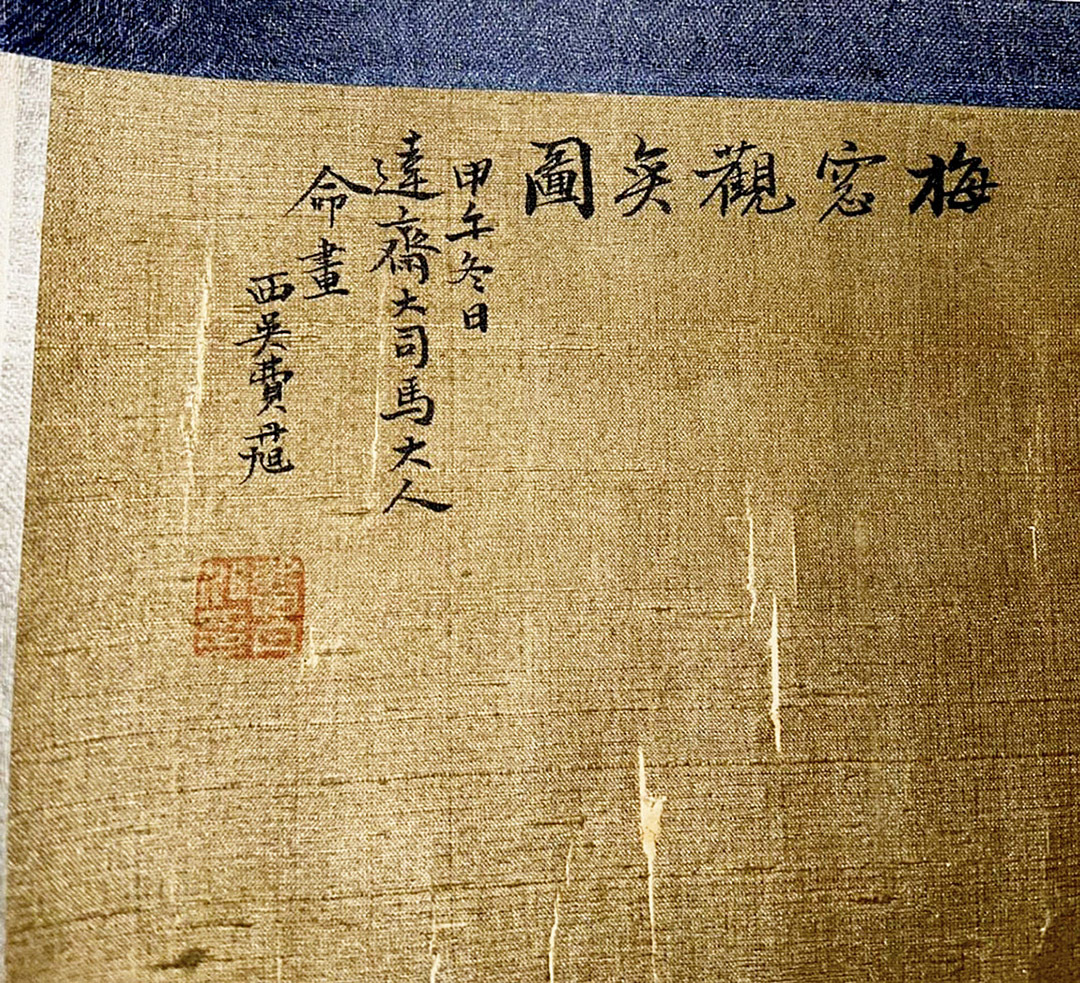 梅窓觀奕圖
甲午冬日
達齋大司馬大人
命畫
西吳費丹旭